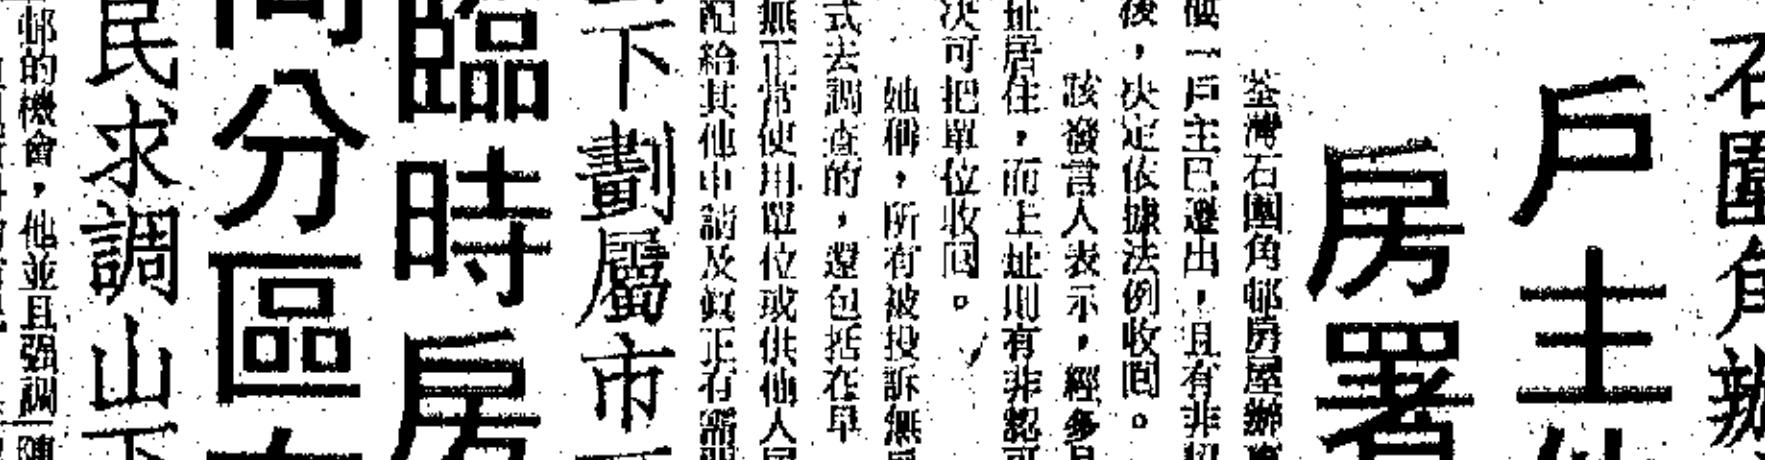 石圍角辦
戶主
房署
荃灣石圍角邨房屋辦
一戶主已遷出，且有非
後，決定依據法例收回。
該發言人表示，經多
址居住，而上址則有非認可
决可把單位收回。
她稱，所有被投訴無
式去調查的，還包括在早
無正常使用單位或供他人居
配給其他申請及眞正有需
下劃屬市
臨時房
分區
民求調山下
邨的機會，他並且强調